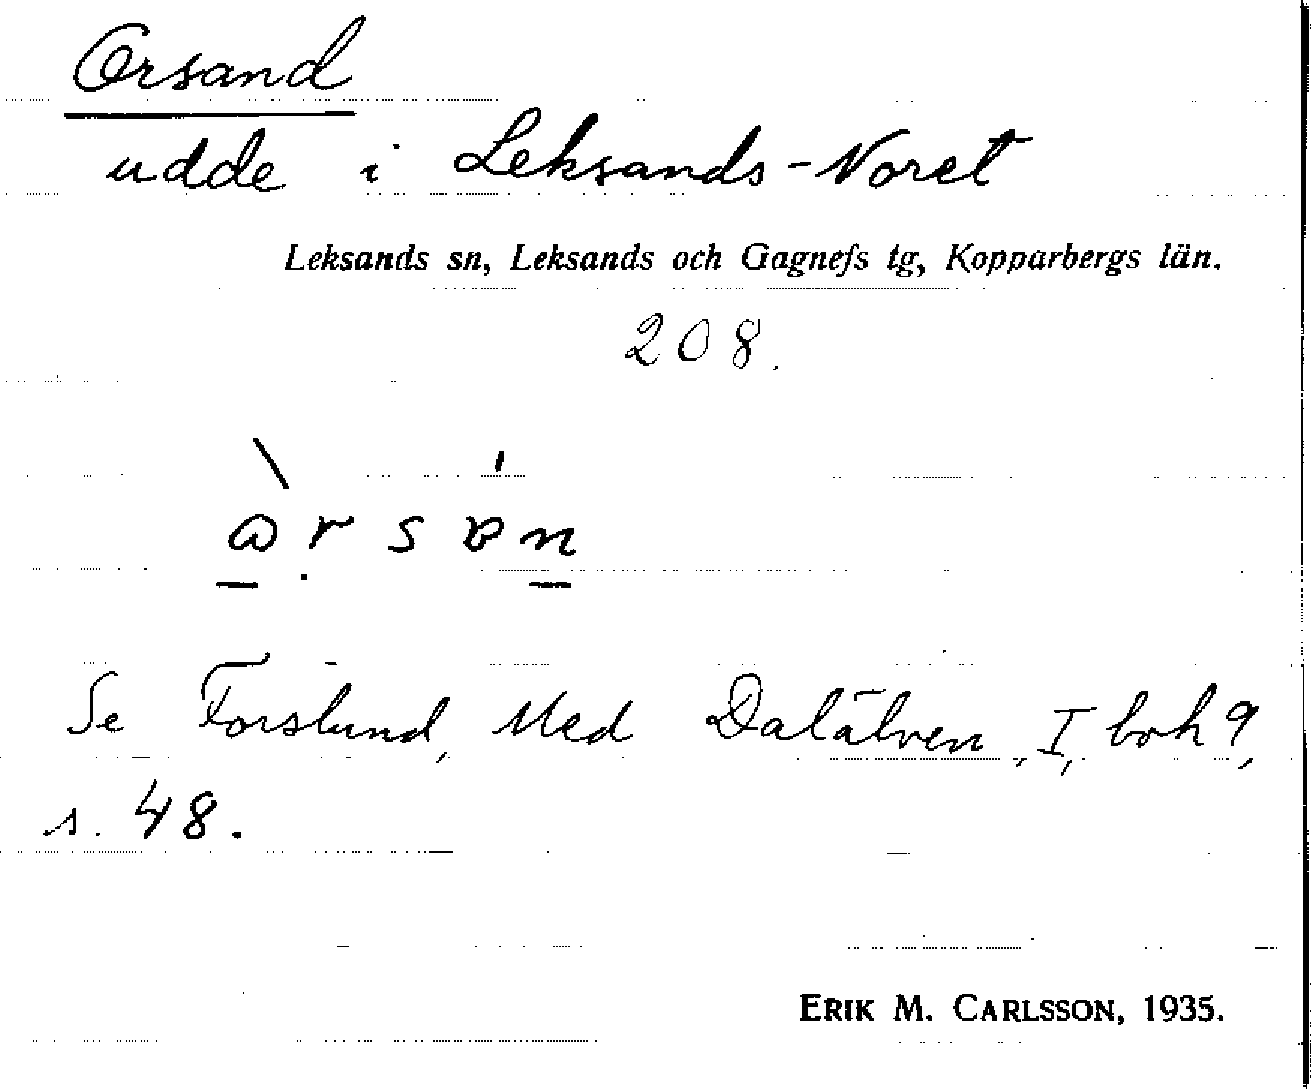 Orsand
udde i Leksands-Noret
Leksands sn, Leksands och Gagnefs tg, Kopparbergs län.
208.
Se Forslund, Med Dalälven, I, bok 9,
s. 48.
ERIK M. CARLSSON, 1935.